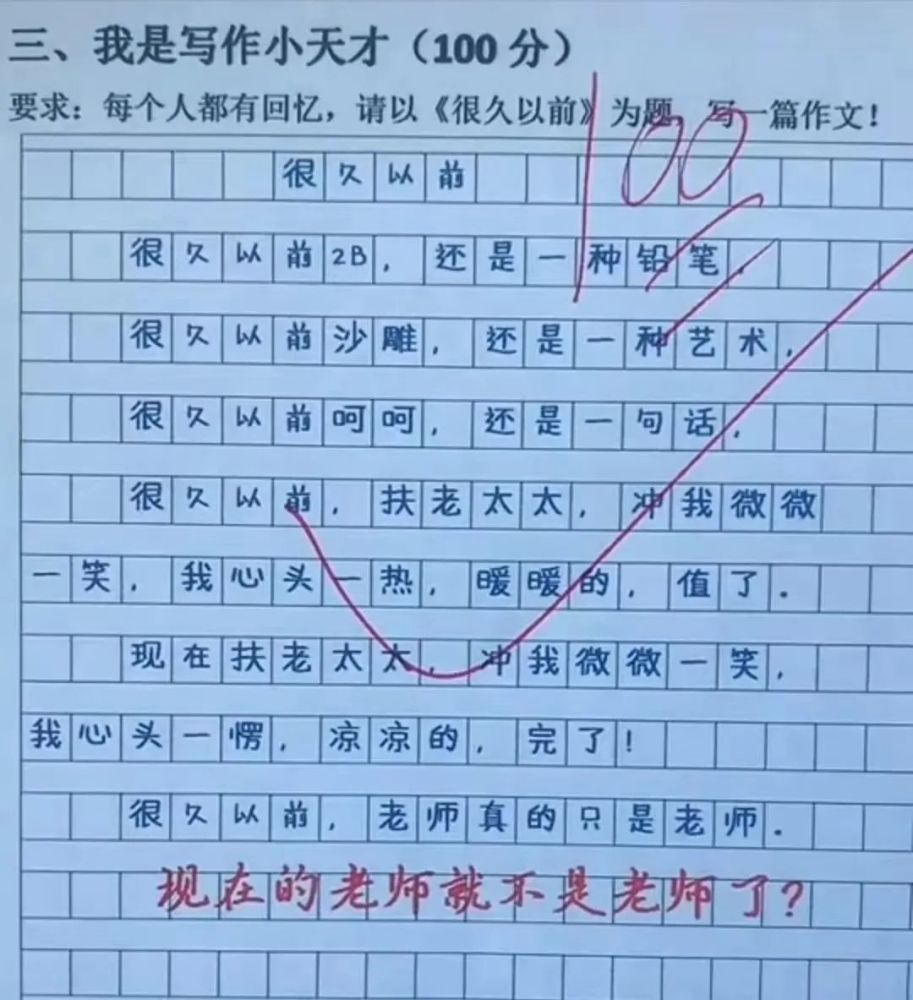 三、我是写作小天才（100 分）
要求：每个人都有回忆，请以《很久以前》为题，写一篇作文！
100
很久以前
很久以前2B，还是一种铅笔，
很久以前沙雕，还是一种艺术，
很久以前呵呵，还是一句话，
很久以前，扶老太太，冲我微微
一笑，我心头一热，暖暖的，值了。
现在扶老太太，冲我微微一笑，
我心头一愣，凉凉的，完了！
很久以前，老师真的只是老师。
现在的老师就不是老师了？